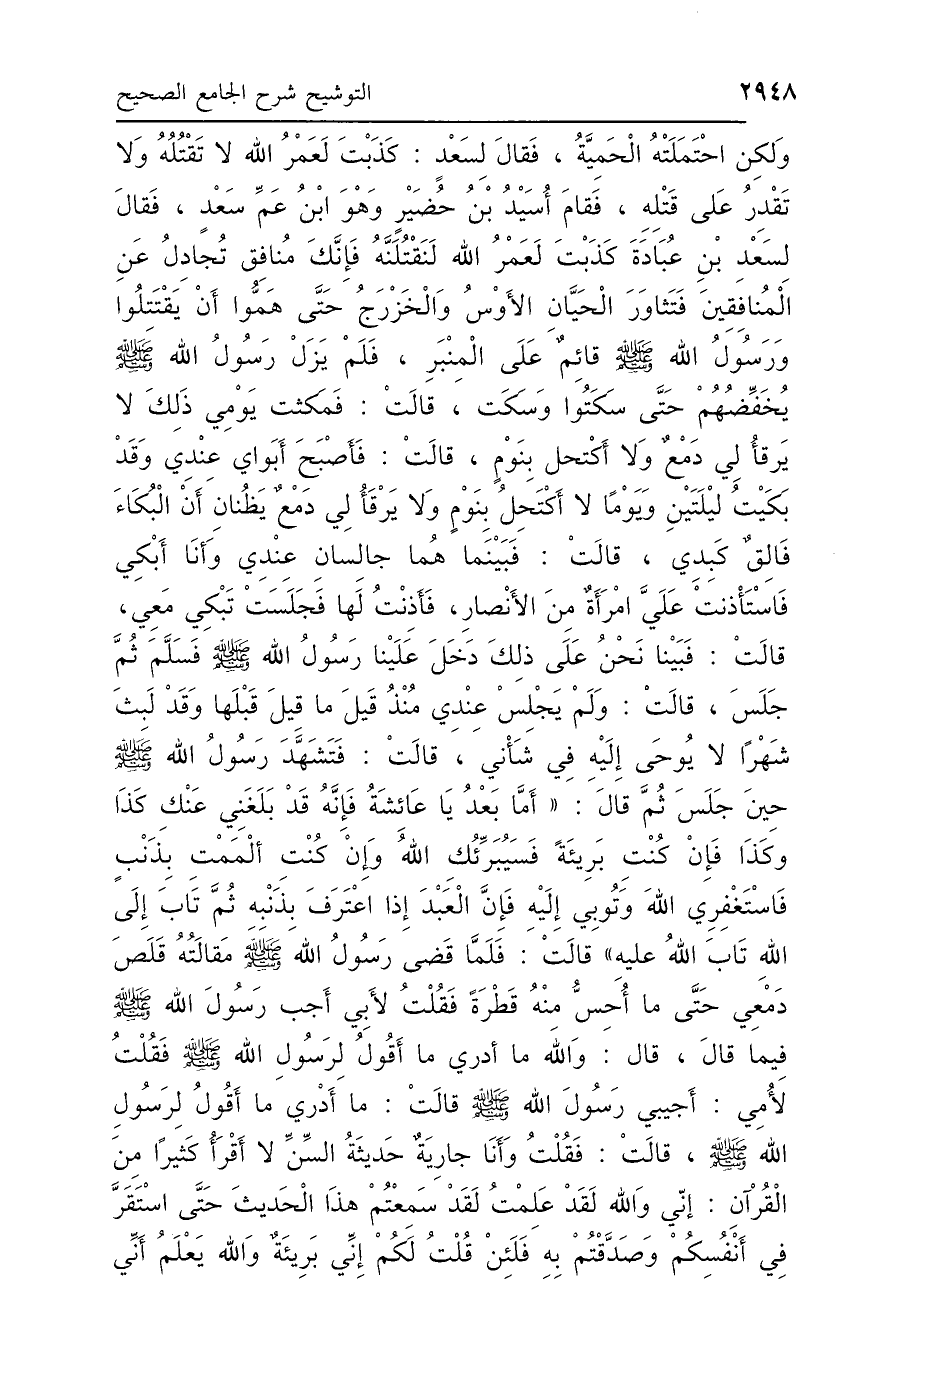 ٢٩٤٨ التوشيح شرح الجامع الصحيح
وَلَكِنِ احْتَمَلَتْهُ الْحَمِيَّةُ ، فَقالَ لِسَعْدٍ : كَذَبْتَ لَعَمْرُ الله لا تَقْتُلُهُ وَلا
تَقْدِرُ عَلى قَتْلِهِ ، فَقامَ أُسَيْدُ بْنُ حُضَيْرٍ وَهْوَ ابْنُ عَمِّ سَعْدٍ ، فَقالَ
لِسَعْدِ بْنِ عُبَادَةَ كَذَبْتَ لَعَمْرُ الله لَنَقْتُلَنَّهُ فَإِنَّكَ مُنافِق تُجادِلُ عَنِ
الْمُنافِقِينَ فَتَثاوَرَ الْحَيَّانِ الأَوْسُ وَالْخَزْرَجُ حَتَّى هَمُّوا أَنْ يَقْتَتِلُوا
وَرَسُولُ الله ﷺ قائِمٌ عَلَى الْمِنْبَرِ ، فَلَمْ يَزَلْ رَسُولُ الله ﷺ
يُخَفِّضُهُمْ حَتَّى سكَتُوا وَسكَت ، قالَتْ : فَمكثت يَوْمِي ذَلِكَ لا
يَرقأُ لِي دَمْعٌ وَلا أَكْتحل بِنَوْمٍ ، قالَتْ : فَأَصْبَحَ أَبَواي عِنْدِي وَقَدْ
بَكَيْتُ لَيْلَتَيْنِ وَيَوْمًا لا أَكْتَحِلُ بِنَوْمٍ وَلا يَرْقَأُ لي دَمْعٌ يَظُنانِ أَنْ الْبُكَاءَ
فَالِقٌ كَبِدِي ، قالَتْ : فَبَيْنَما هُما جالِسان عِنْدِي وَأَنا أَبْكِي
فَاسْتَأْذنتْ عَلَيَّ امْرَأَةٌ مِنَ الأَنْصارِ، فَأَذِنْتُ لَها فَجَلَسَتْ تَبْكِي مَعِي،
قالَتْ : فَبَيْنا نَحْنُ عَلَى ذلِكَ دَخَلَ عَلَيْنا رَسُولُ الله ﷺ فَسَلَّمَ ثُمَّ
جَلَسَ ، قالَتْ : وَلَمْ يَجْلِسْ عِنْدِي مُنْذُ قِيلَ ما قِيلَ قَبْلَها وَقَدْ لَبِثَ
شَهْرًا لا يُوحَى إِلَيْهِ فِي شَأْنِي ، قالَتْ : فَتَشَهَّدَ رَسُولُ الله ﷺ
حِينَ جَلَسَ ثُمَّ قالَ : « أَمَّا بَعْدُ يَا عَائِشَةُ فَإِنَّهُ قَدْ بَلَغَنِي عَنْكِ كَذَا
وكَذَا فَإِنْ كُنْتِ بَرِيئَةً فَسَيُبَرِّئُكِ اللهُ وَإِنْ كُنْتِ أَلْمَمْتِ بِذَنْبٍ
فَاسْتَغْفِرِي اللهَ وَتُوبِي إِلَيْهِ فَإِنَّ الْعَبْدَ إِذا اعْتَرَفَ بِذَنْبِهِ ثُمَّ تَابَ إِلَى
الله تَابَ اللهُ عليهِ» قالَتْ : فَلَمَّا قَضى رَسُولُ الله ﷺ مَقالَتَهُ قَلَصَ
دَمْعِي حَتَّى ما أُحِسُّ مِنْهُ قَطْرَةً فَقُلْتُ لأَبِي أَجِب رَسُولَ الله ﷺ
فِيما قالَ ، قال : وَالله ما أَدرِي ما أَقُولُ لِرَسُولِ الله ﷺ فَقُلْتُ
لأُمِي : أَجِيبِي رَسُولَ الله ﷺ قالَتْ : ما أَدْرِي ما أَقُولُ لِرَسُولِ
الله ﷺ ، قالَتْ : فَقُلْتُ وَأَنا جارِيَةٌ حَدِيثَةُ السِّنِّ لا أَقْرَأُ كَثِيرًا مِنَ
الْقُرْآنِ : إِنّي وَالله لَقَدْ عَلِمْتُ لَقَدْ سَمِعْتُمْ هذَا الْحَدِيثَ حَتَّى اسْتَقَرَّ
فِي أَنْفُسِكُمْ وَصَدَّقْتُمْ بِهِ فَلَئِنْ قُلْتُ لَكُمْ إِنِّي بَرِيئَةٌ وَالله يَعْلَمُ أَنِّي